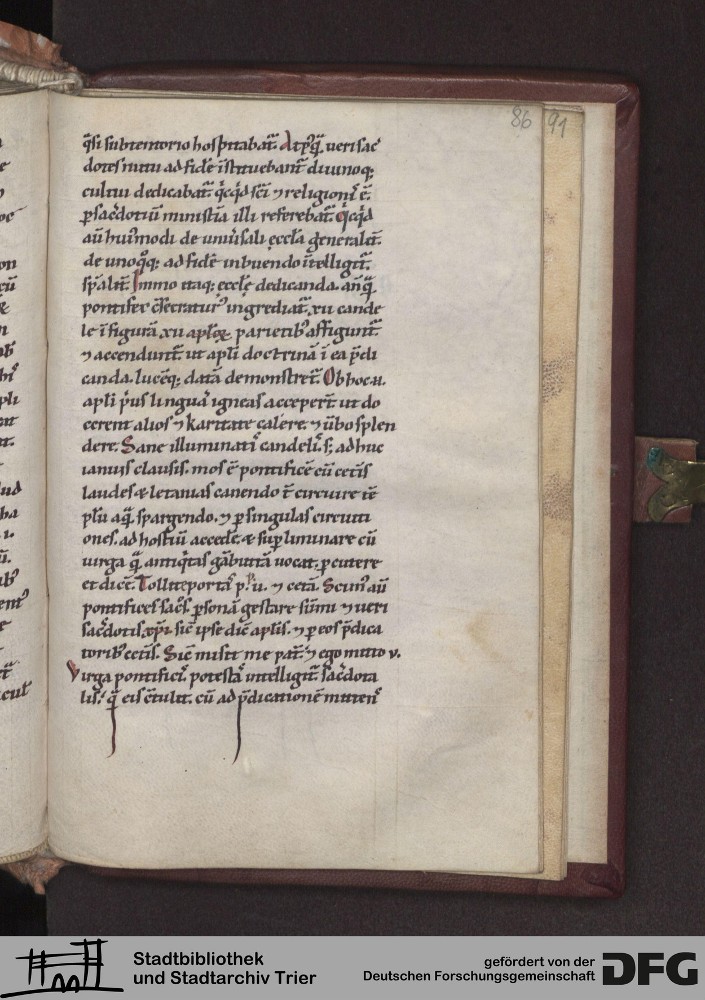 86 91
q̄si sub tentorio hospitabat̃. At p̱q̃ ueri sac̃
dotes nutu ad fidē īstituebant̃ diuinoq;
cultui dedicabat̃. q̇cq̇d sc̄i ⁊ religioni ē.
p̱ sac̃dotiū ministr̄ia illi referebat̃. Q̇cq̇d
aū hui᷒modi de uniu̇sali eccl̄a gēneralit̃.
de unoq̊q; ad fidē inbuendo ītelligit̃.
sp̄alit̃. Immo itaq; eccl̄ę dedicanda. an̄q̃
pontifex c̄secratur᷒ ingrediat̃. xii cande
le ī figurā xii ap̄loꝝ parietib᷒ affigunt̃
⁊ accendunt̃. ut ap̄li doctrinā ī ea p̄di
canda. lucēq; datā demonstret̃. Ob hoc .n.
apli p̓us linguā igneas acceper̄t. ut do
cerent alios ⁊ karitate calere. ⁊ u̇bo splen
dere. Sane illuminati candeli᷒. s; adhuc
ianuis clausis. mos ē pontificē cū cet̓is
laudes & letanias canendo t̄ circuire tē
plū aq̃ spargendo. ⁊ p̱ singulas circuiti
ones. ad hostiū accede. & sup̱ liminare cū
uirga q̃ antiq̇tas gābuttā uocat. p̱cutere
et dicē. Tollite porta᷒ p. u. ⁊ cetā. Sciun᷒ aū
pontifices sac̄s. p̱sonā gestare sūmi ⁊ ueri
sac̃dotis xp̄i. sic̄ ipse dic̄ ap̄lis. ⁊ p̱ eos p̄dica
torib᷒ cet̓is. Sic̄ misit me pat̃. ⁊ ego mitto v.
Virga pontifici᷒. potestā᷒ intelligit̃ sac̃dota
lis. q̃ eis c̄tulit. cū ad p̄dicationē mitten᷒
Stadtbibliothek
und Stadtarchiv Trier
gefördert von der
Deutschen Forschungsgemeinschaft
DFG